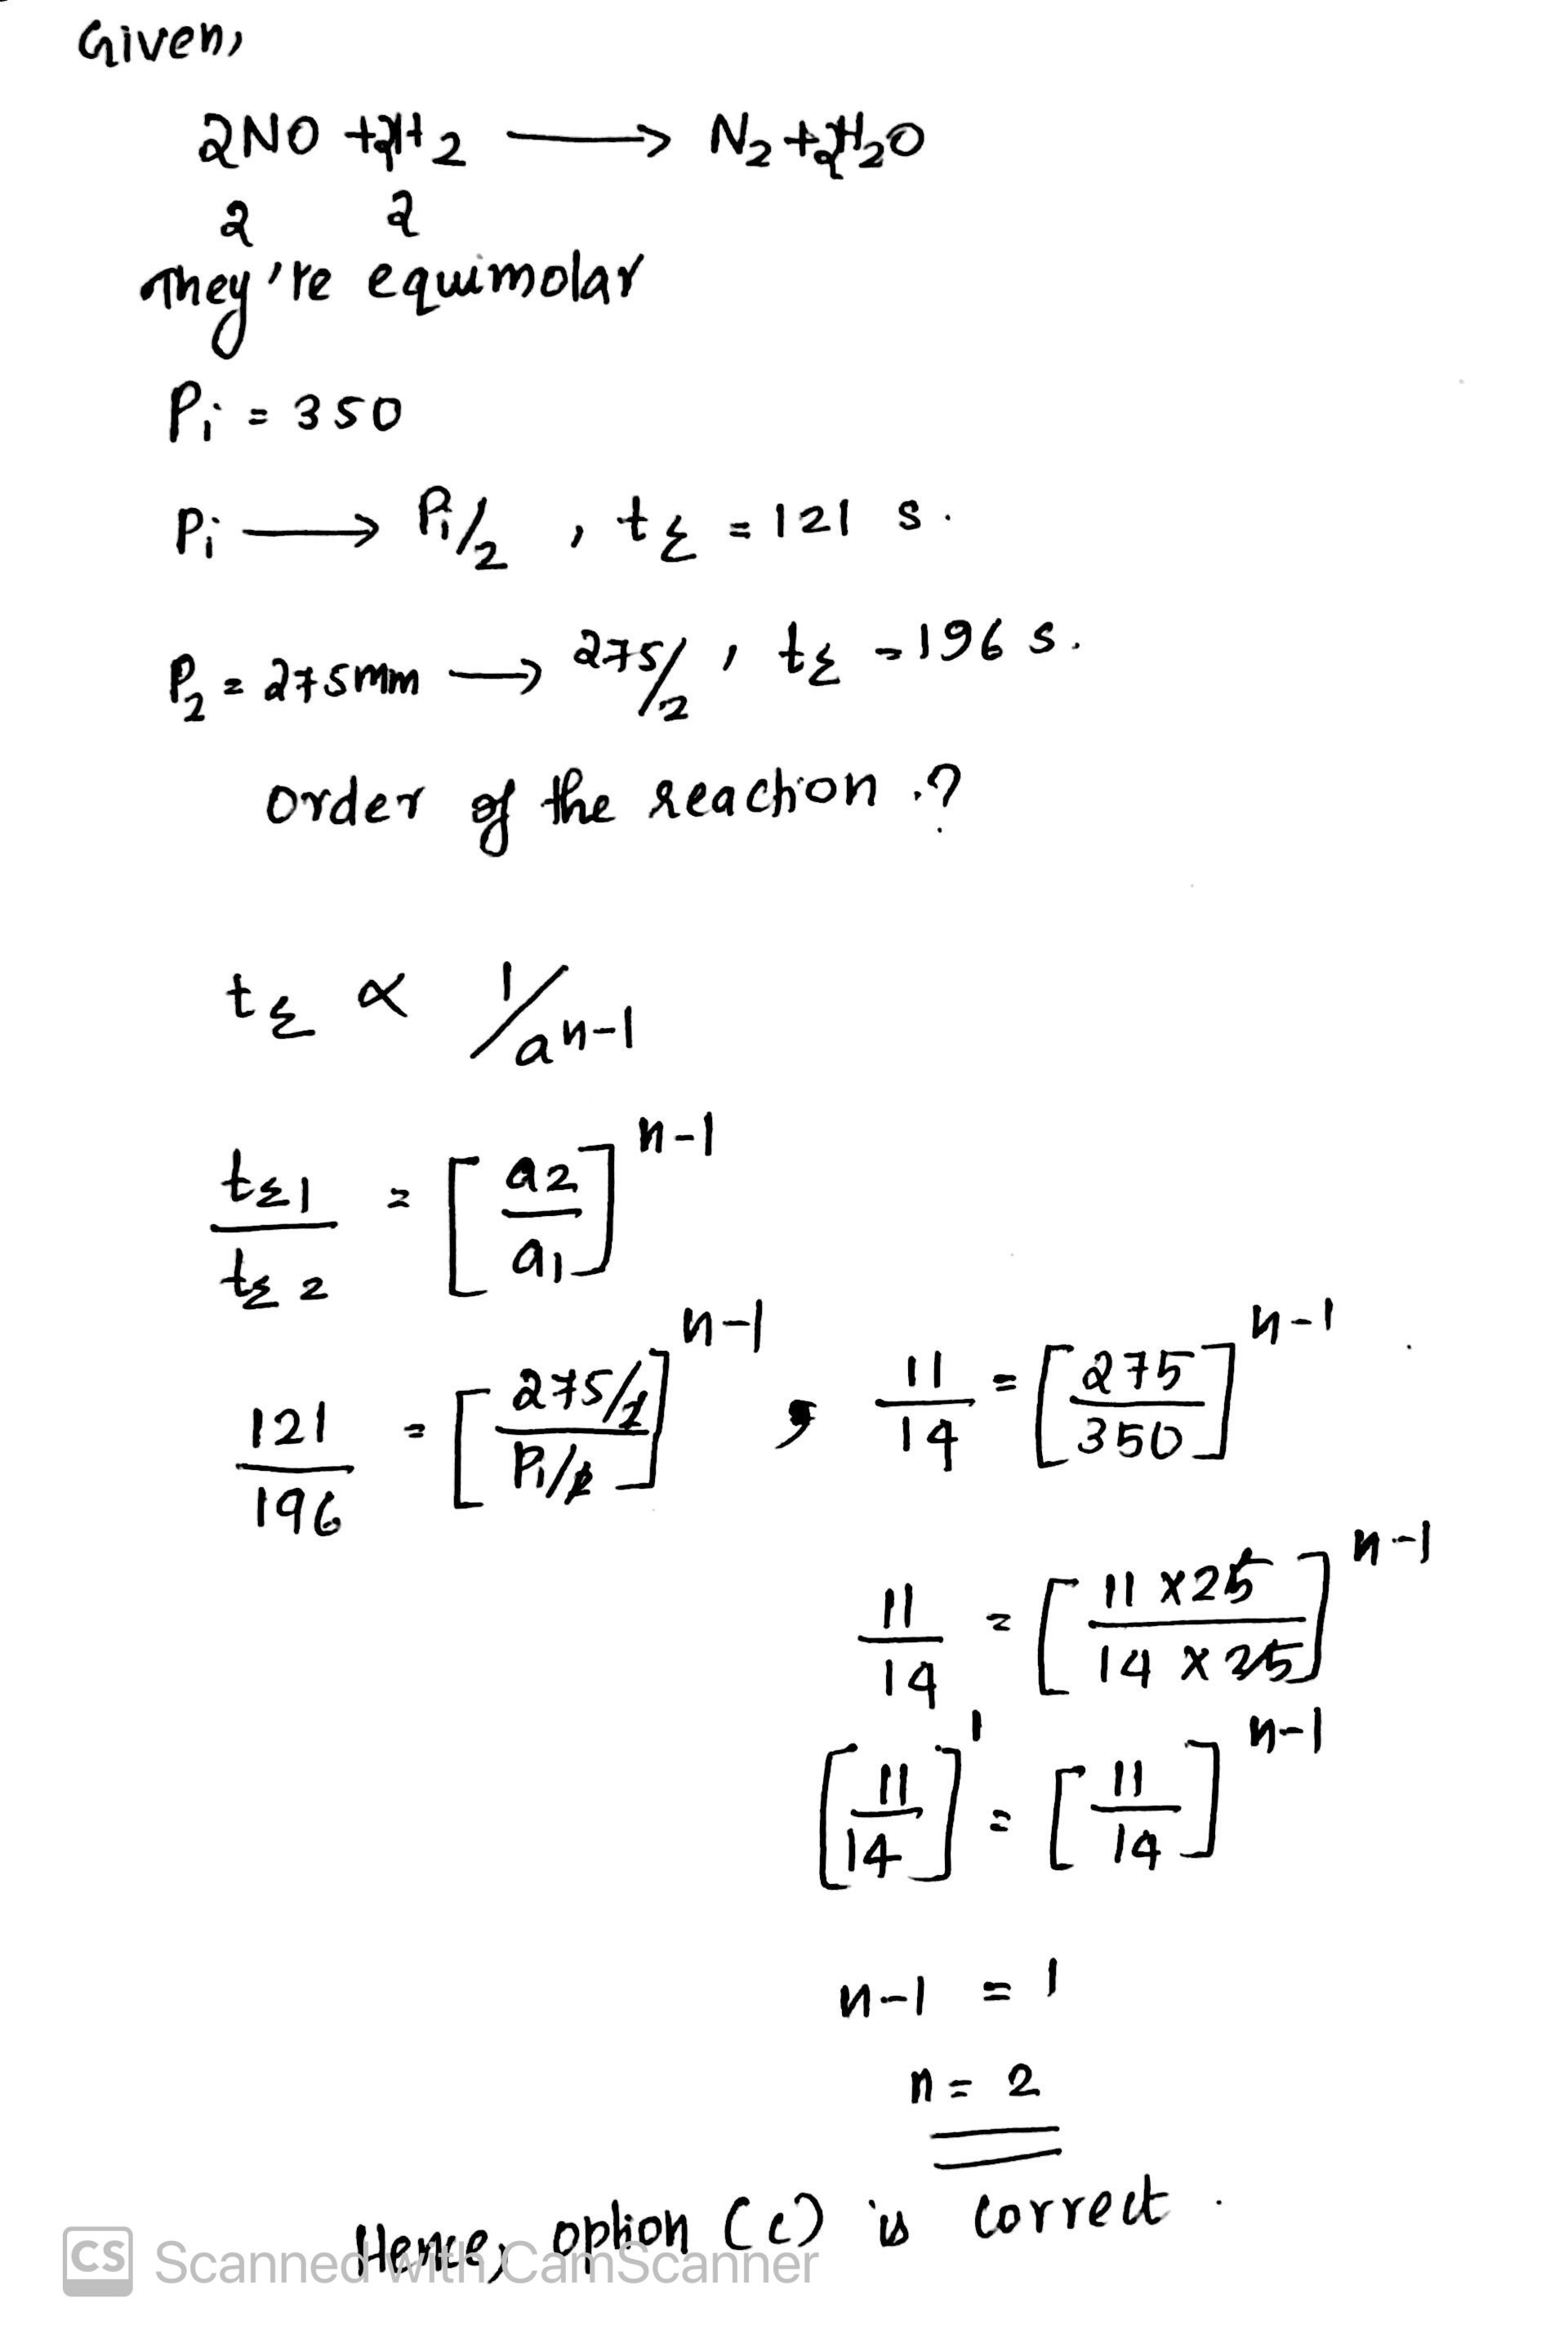 Given,
2NO + 2H2 ⟶ N2 + 2H2O
2 2
They're equimolar
Pi = 350
Pi ⟶ Pi/2 , t½ = 121 s.
P2 = 275mm ⟶ 275/2 , t½ = 196 s.
order of the reaction ?
t½ ∝ 1/a^n-1
t½1 / t½2 = [a2/a1]^n-1
121/196 = [275/2 / Pi/2]^n-1 , 11/14 = [275/350]^n-1
11/14 = [11 x 25 / 14 x 25]^n-1
[11/14]^1 = [11/14]^n-1
n-1 = 1
n = 2
Hence, option (c) is correct.
CS Scanned with CamScanner